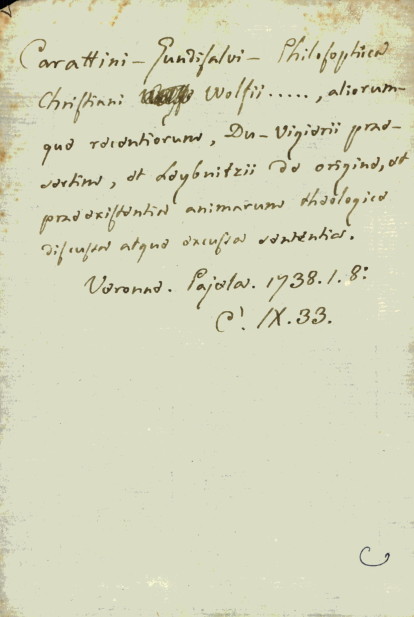 Carattini - Gundisalvi - Philosophica
Christiani Wolfii ....., aliorum-
que recentiorum, Du-Vigierii prae-
sertim, et Leybnitzii de origine, et
praeexistentia animarum theologice
discussa atque excussa sententia.
Veronae. Pajola. 1738. 1. 8:
C'. IX. 33.